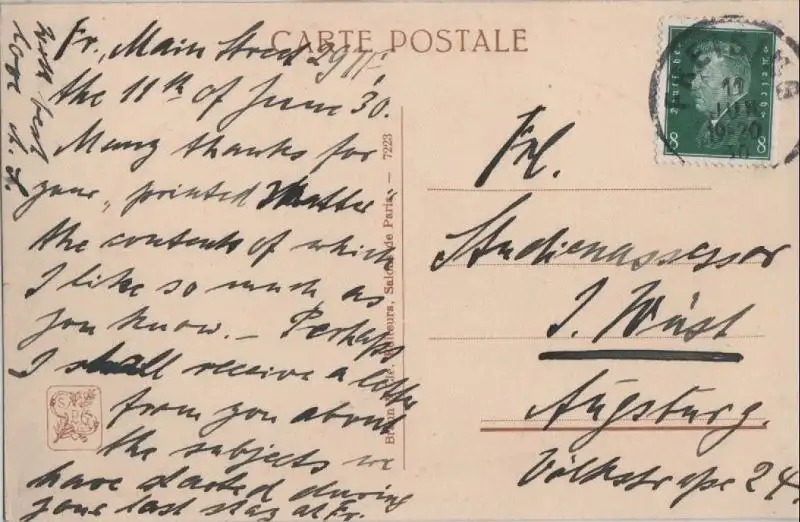 CARTE POSTALE
Fr, Main Street 29 III,
the 11th of June 30.
Many thanks for
your „printed Matter"
the contents of which
I like so much as
you know. – Perhaps
I shall receive a letter
from you about
the subjects we
have started during
your last stay at Fr.
With best
love
Braun & Cie, Editeurs, Salon de Paris. — 7223
S P G
Deutsches Reich
8 8
11
JUN
19-20
30
Frl.
Studienassessor
J. Wüst
Augsburg.
Völkstraße 24.